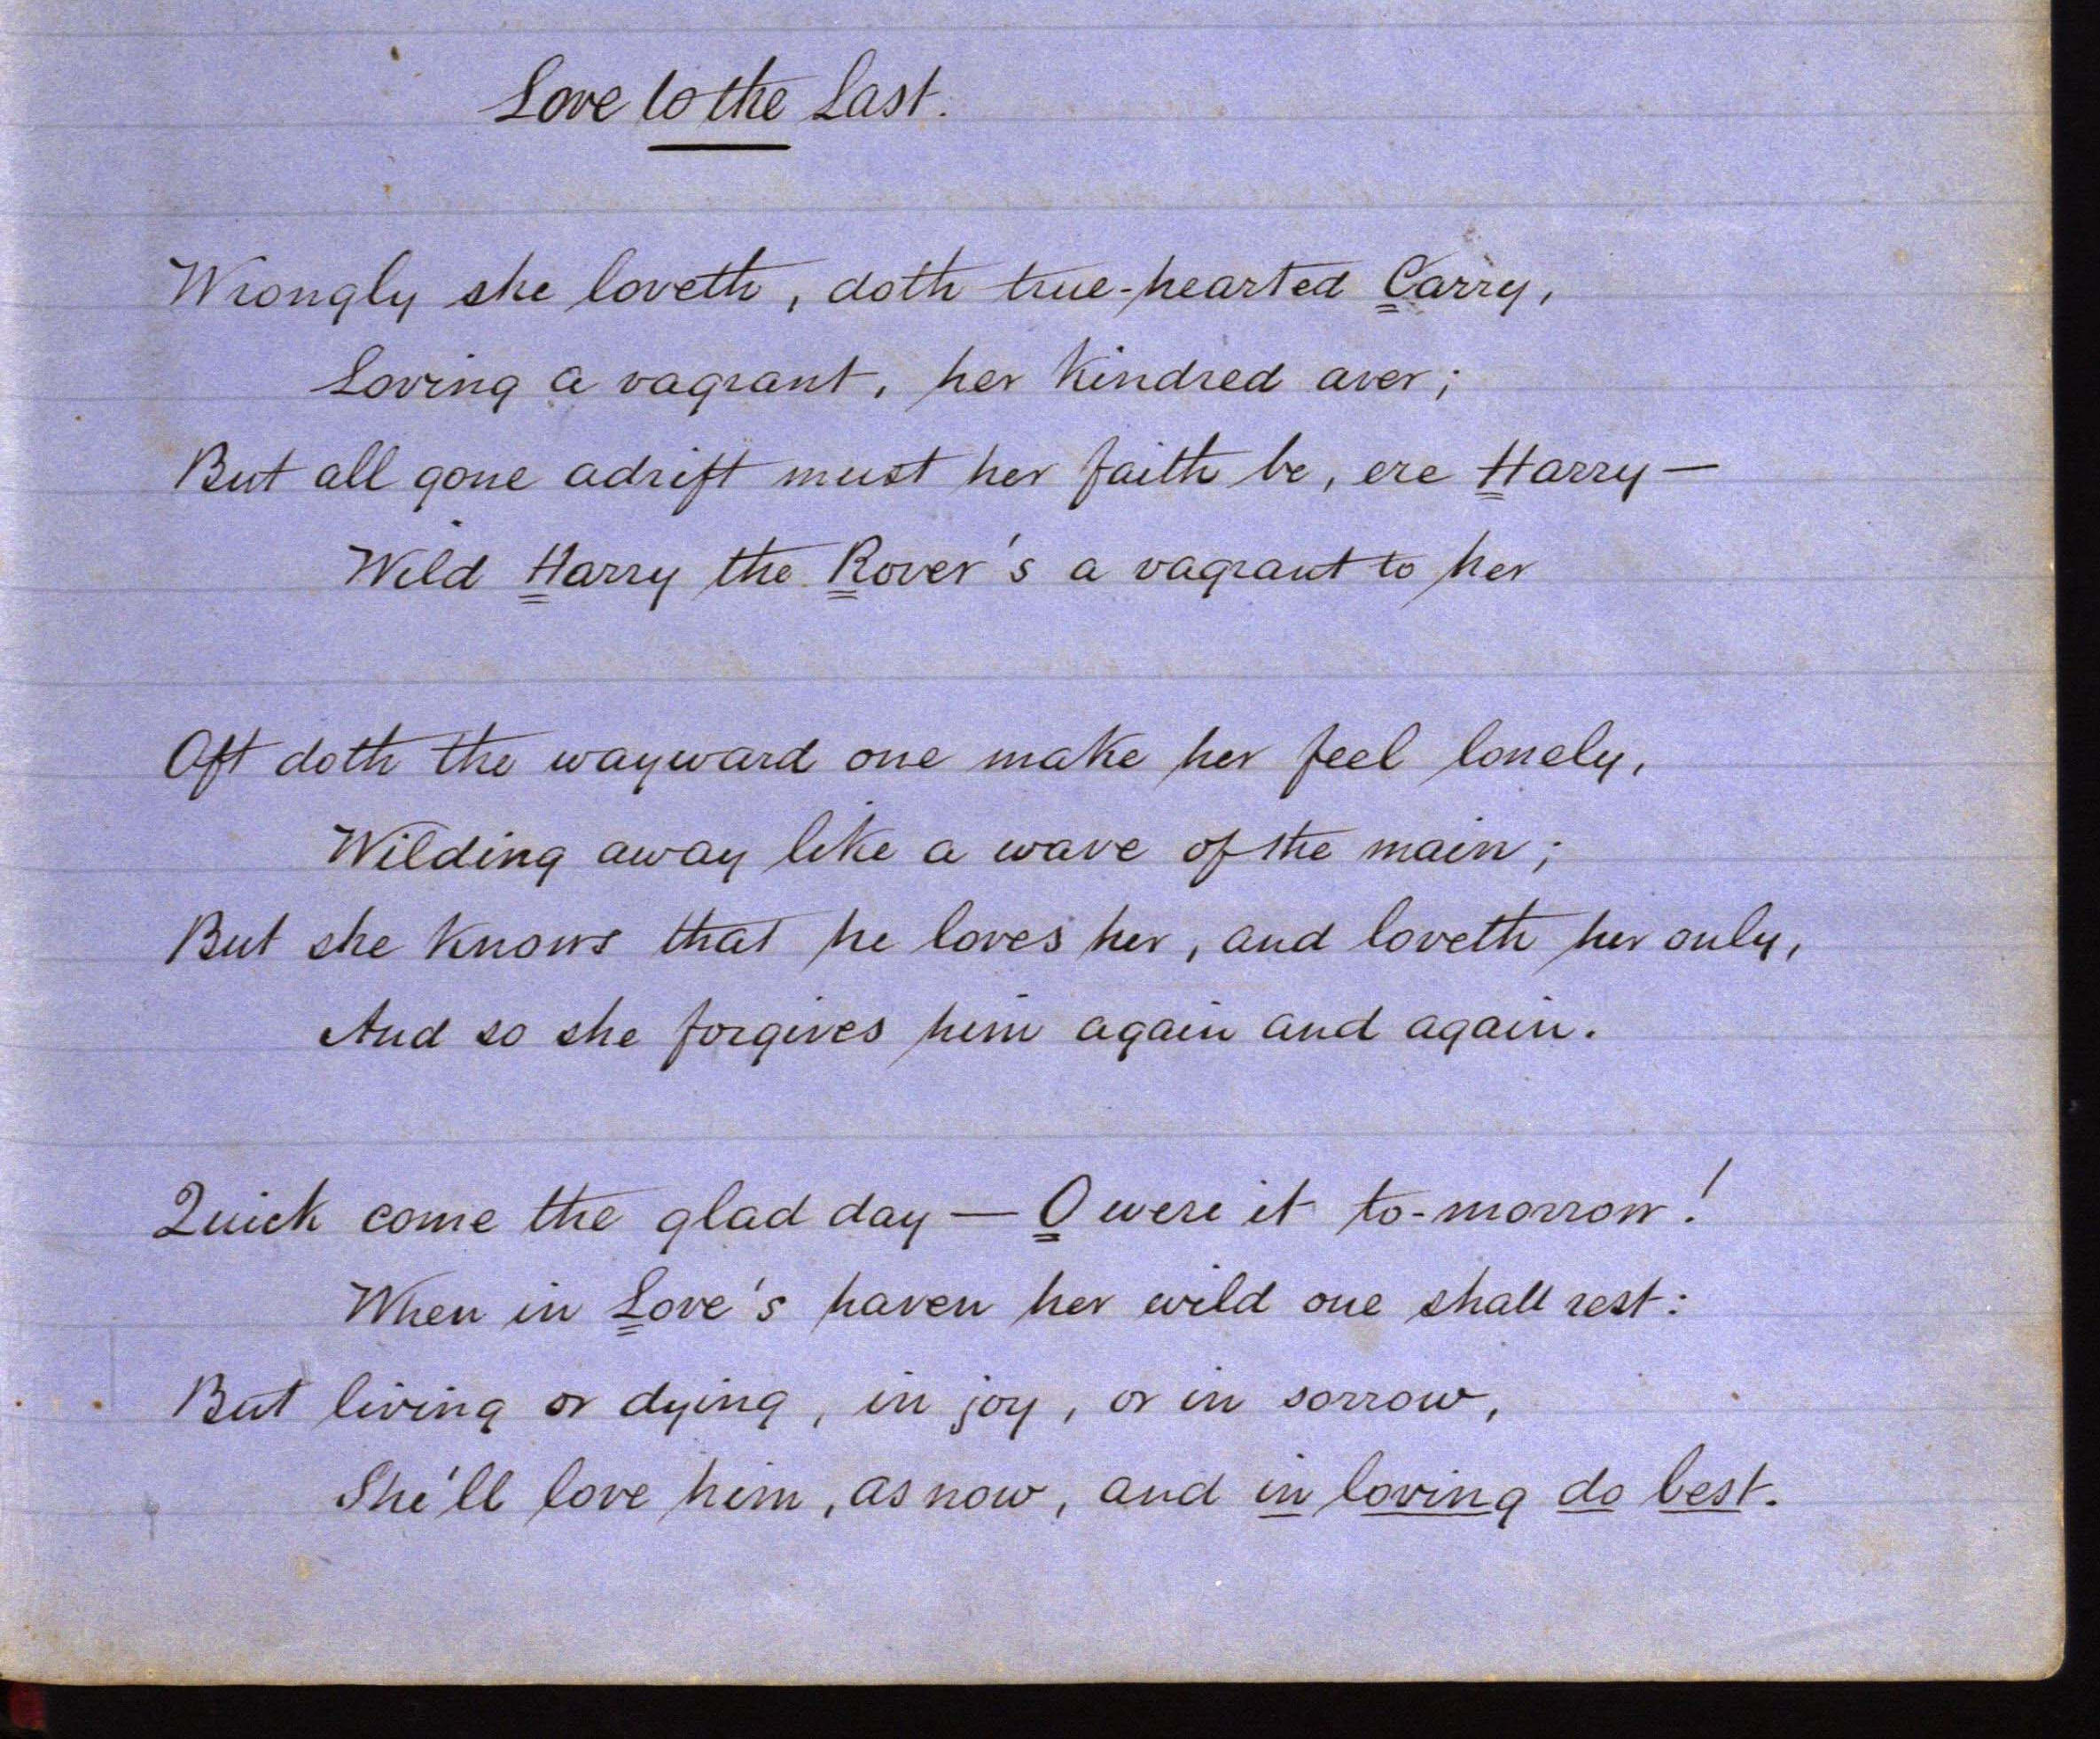 Love to the Last.
Wrongly she loveth, doth true-hearted Carry,
Loving a vagrant, her kindred aver;
But all gone adrift must her faith be, ere Harry—
Wild Harry the Rover's a vagrant to her
Oft doth the wayward one make her feel lonely,
Wilding away like a wave of the main;
But she knows that he loves her, and loveth her only,
And so she forgives him again and again.
Quick come the glad day — O were it to-morrow!
When in Love's haven her wild one shall rest:
But living or dying, in joy, or in sorrow,
She'll love him, as now, and in loving do best.